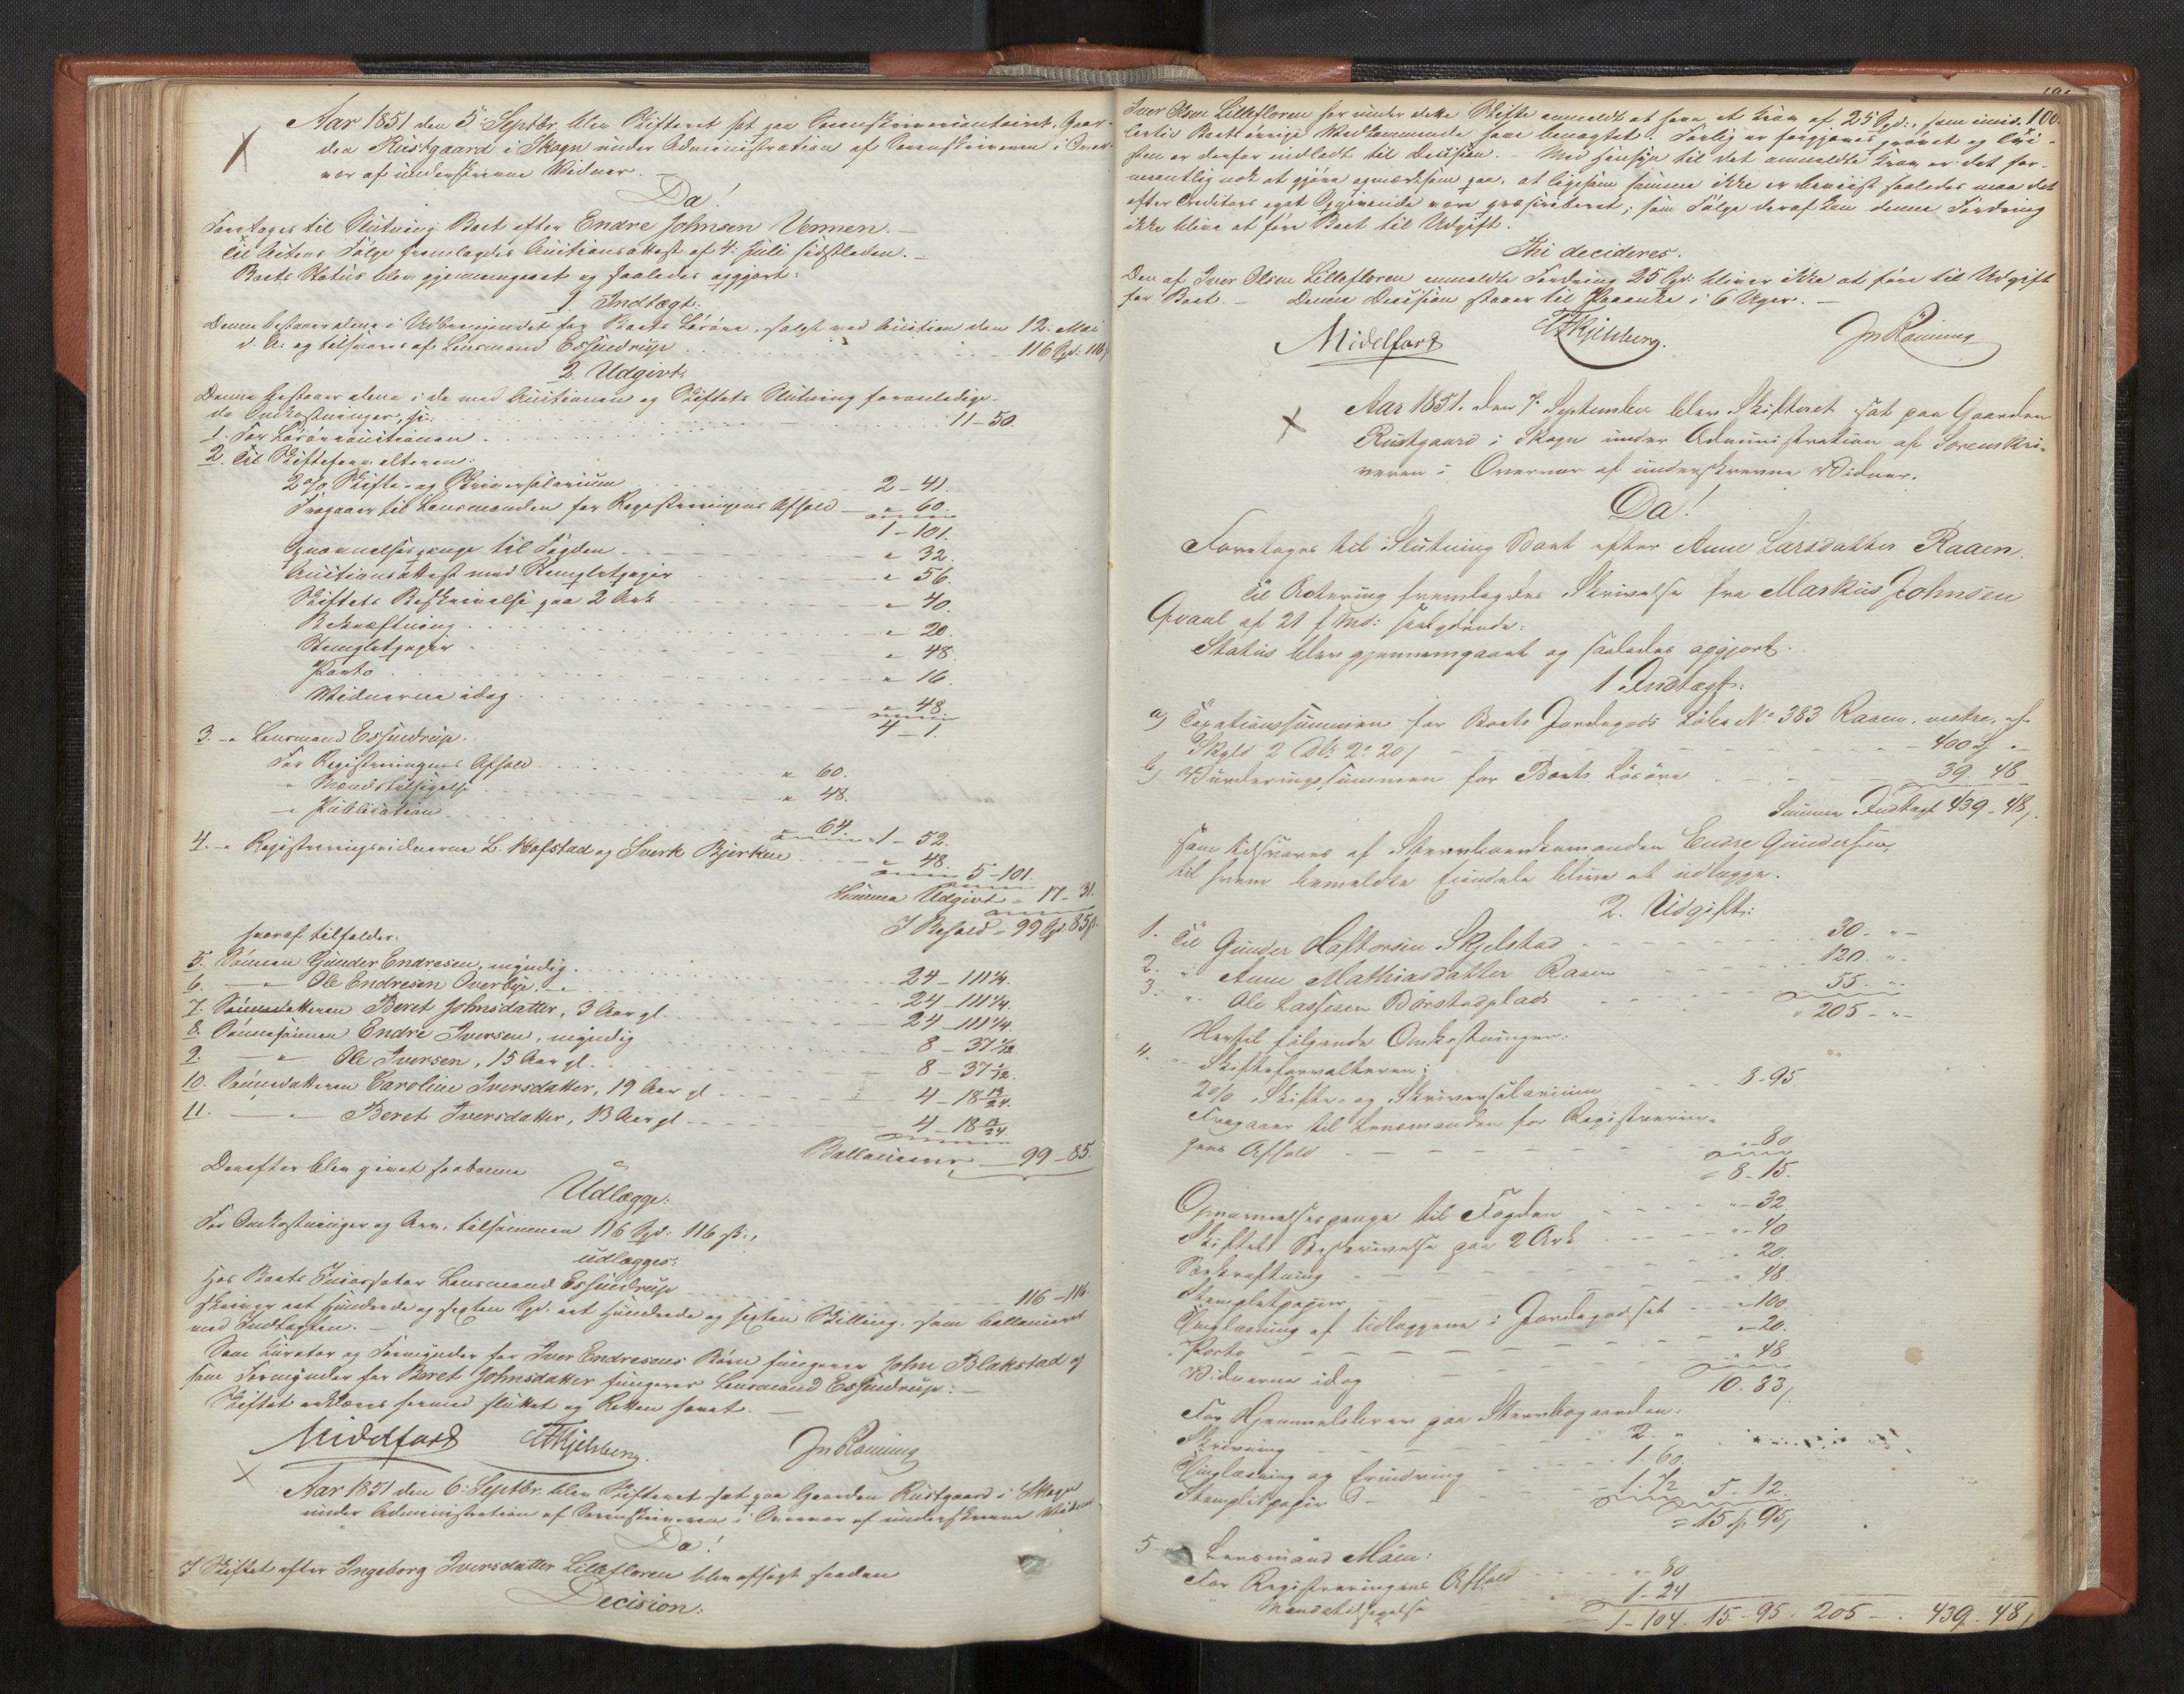 Aar 1851 den 5: Septbr. blev Skifteret sat paa Sorenskrivercontoiret, Gaar-
den Rustgaard i Skogn under Administration af Sorenskriveren i Over-
vær af underskrevne Vidner. —
Da!
Foretages til Slutning Boet efter Endre Johnsen Vennen. —
Til Actens Følge fremlagdes Auctionsattest af 4: Juli sidstleden. —
Boets Status blev gjennemgaaet og saaledes opgjort:
1. Indtægt:
Denne bestaaer alene i Udbringendet for Boets Løsøre, solgt ved Auction den 12: Mai
d. A: og tilsvares af Lensmand Essendrup 116 Spd: 116 ß
2. Udgivt:
Denne bestaaer alene i de med Auctionen og Skiftets Slutning foranledige-
de Omkostninger, se:
1. For Løsøreauctionen 11-50.
2. Til Skifteforvalteren:
2 o/o Skifte- og Skriversalarium 2-41.
Fragaaer til Lensmanden for Registreringens Afhold " 60.
1-101.
Opnævnelsespenge til Fogden " 32.
Auctionsattest med Stempletpapir " 56.
Skiftets Beskrivelse paa 2 Ark " 40.
Bekræftning " 20.
Stempletpapir " 48.
Porto " 16.
Vidnerne idag " 48.
4-1.
3. " Lensmand Essendrup.
For Registreringens Afhold " 60.
" Mandstilsigelse " 48.
" Publication " 64. 1-52.
4. " Registreringsvidnerne L. Hofstad og Sverk Bjerken " 48.
5-101.
Summa Udgivt 17-31.
I Behold = 99 Spd. 85 ß.
hvoraf tilfalder:
5. Sønnen Gunder Endresen, myndig 24-111 1/4.
6. — " Ole Endresen Overbye, " 24-111 1/4.
7. Sønnedatteren Beret Johnsdatter, 3 Aar gl. 24-111 1/4.
8. Sønnesønnen Endre Iversen, myndig 8-37 1/12.
9. — " Ole Iversen, 15 Aar gl. 8-37 1/12.
10. Sønnedatteren Caroline Iversdatter, 19 Aar gl 4-18 13/24.
11. — " Beret Iversdatter, 13 Aar gl 4-18 13/24.
Ballancerer 99-85.
Derefter blev givet saadanne
Udlægge:
For Omkostninger og Arv, tilsammen 116 Spd: 116 ß.,
udlægges:
Hos Boets Incassator Lensmand Essendrup 116-116
skriver eet Hundrede og sexten Spd. eet Hundrede og sexten Skilling, som ballancerer
med Indtægten. —
Som Curator og Formynder for Iver Endresens Børn fungerer John Blakstad og
som Formynder for Beret Johnsdatter fungerer Lensmand Essendrup: —
Skiftet erklæres hermed sluttet og Retten hævet. —
Middelfart
Aar 1851 den 6: Septbr. blev Skifteret sat paa Gaarden Rustgaard i Skogn
under Administration af Sorenskriveren i Overvær af underskrevne Vidner
Da!
I Skiftet efter Ingeborg Iversdatter Lillefloren blev afsagt saadan
Decision:
Iver Olsen Lillefloren har under dette Skifte anmeldt at have et Krav af 25 Spd:, som imid- 100.
lertid Boets øvrige Vedkommende have benægtet. Forlig er forgjæves prøvet og Tvi-
sten er derfor indladt til Decision. — Med Hensyn til det anmeldte Krav er det for-
mentlig nok at gjøre opmærksom paa, at ligesom samme ikke er beviist saaledes maa det
efter Creditors eget Opgivende være præscriberet; som Følge deraf kan denne Fordring
ikke blive at føre Boet til Udgift.
Thi decideres.
Den af Iver Olsen Lillefloren anmeldte Fordring 25 Spd: bliver ikke at føre til Udgift
for Boet. — Denne Decision staaer til Paaanke i 6 Uger. —
Middelfart
Aar 1851. den 7 September blev Skifteret sat paa Gaarden
Rustgaard i Skogn under Administration af Sorenskri-
veren i Overvær af underskrevne Vidner.
Da!
Foretages til Slutning Boet efter Anne Larsdatter Raaen.
Til Actering fremlagdes Skrivelse fra Markus Johnsen
Graael af 21 f. Md: saalydende:
Status blev gjennemgaaet og saaledes opgjort.
1 Indtægt:
a) Taxationssummen for Boets Jordegods Løbe No 383 Raaen, vestre, af
Skyld 2 Dlr 2: 20 ß 400 Spd "
b) Vurderingssummen for Boets Løsøre 39 48
Summa Indtægt 439-48,
som tilsvares af Stervboenkemanden Endre Gundersen,
til hvem bemeldte Eiendele blive at udlægge.
2. Udgift:
1. Til Gunder Haftorsen Skjelstad 30. " -
2. " Anne Mathiasdatter Raaen 120. " -
3. " Ole Lassesen Børstadplads 55. " -
" 205 - " -
Hertil følgende Omkostninger.
4. " Skifteforvalteren:
2 o/o Skifte- og Skriversalarium 8-95.
Fragaaer til Lensmanden for Registrerin-
gens Afhold " 80
= 8-15.
Opnævnelsespenge til Fogden " 32
Skiftets Beskrivelse paa 2 Ark " 40
Bekræftning " 20.
Stempletpapir " 48.
Thinglæsning af Udlæggene i Jordegodset " 100.
Porto " 20.
Vidnerne idag " 48
10. 83,
For Hjemmelsbrev paa Stervbogaarden:
Skrivning 2. "
Thinglæsning og Erindring 1. 60.
Stempletpapir 1. 72 5. 12.
= 15 ß 95,
5 Lensmand Moen:
For Registreringens Afhold " 80
" Mandstilsigelse 1-24
1-104. 15-95. 205 - . 439. 48,